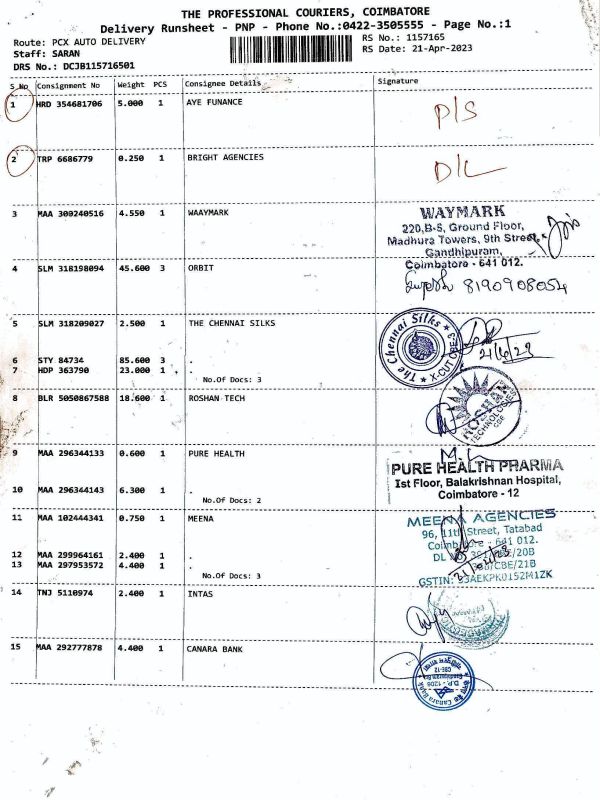 THE PROFESSIONAL COURIERS, COIMBATORE
Delivery Runsheet - PNP - Phone No.:0422-3505555 - Page No.:1
Route: PCX AUTO DELIVERY
Staff: SARAN
DRS No.: DCJB115716501
RS No.: 1157165
RS Date: 21-Apr-2023
S.No Consignment No Weight PCS Consignee Details Signature
1 HRD 354681706 5.000 1 AYE FUNANCE P/S
2 TRP 6686779 0.250 1 BRIGHT AGENCIES D/L
3 MAA 300240516 4.550 1 WAAYMARK
WAYMARK
220,B-5, Ground Floor,
Madhura Towers, 9th Street,
Gandhipuram,
Coimbatore - 641 012.
4 SLM 318198094 45.600 3 ORBIT
8190908054
5 SLM 318209027 2.500 1 THE CHENNAI SILKS
The Chennai Silks
X-CUT CBE-3
21/4/23
6 STY 84734 85.600 3 .
7 HDP 363790 23.000 1 .
No.Of Docs: 3
8 BLR 5050867588 18.600 1 ROSHAN TECH
9 MAA 296344133 0.600 1 PURE HEALTH
PURE HEALTH PHARMA
Ist Floor, Balakrishnan Hospital,
Coimbatore - 12
10 MAA 296344143 6.300 1 .
No.Of Docs: 2
11 MAA 102444341 0.750 1 MEENA
MEENA AGENCIES
96, 11th Street, Tatabad
Coimbatore - 641 012.
12 MAA 299964161 2.400 1 .
13 MAA 297953572 4.400 1 .
No.Of Docs: 3
14 TNJ 5110974 2.400 1 INTAS
15 MAA 292777878 4.400 1 CANARA BANK